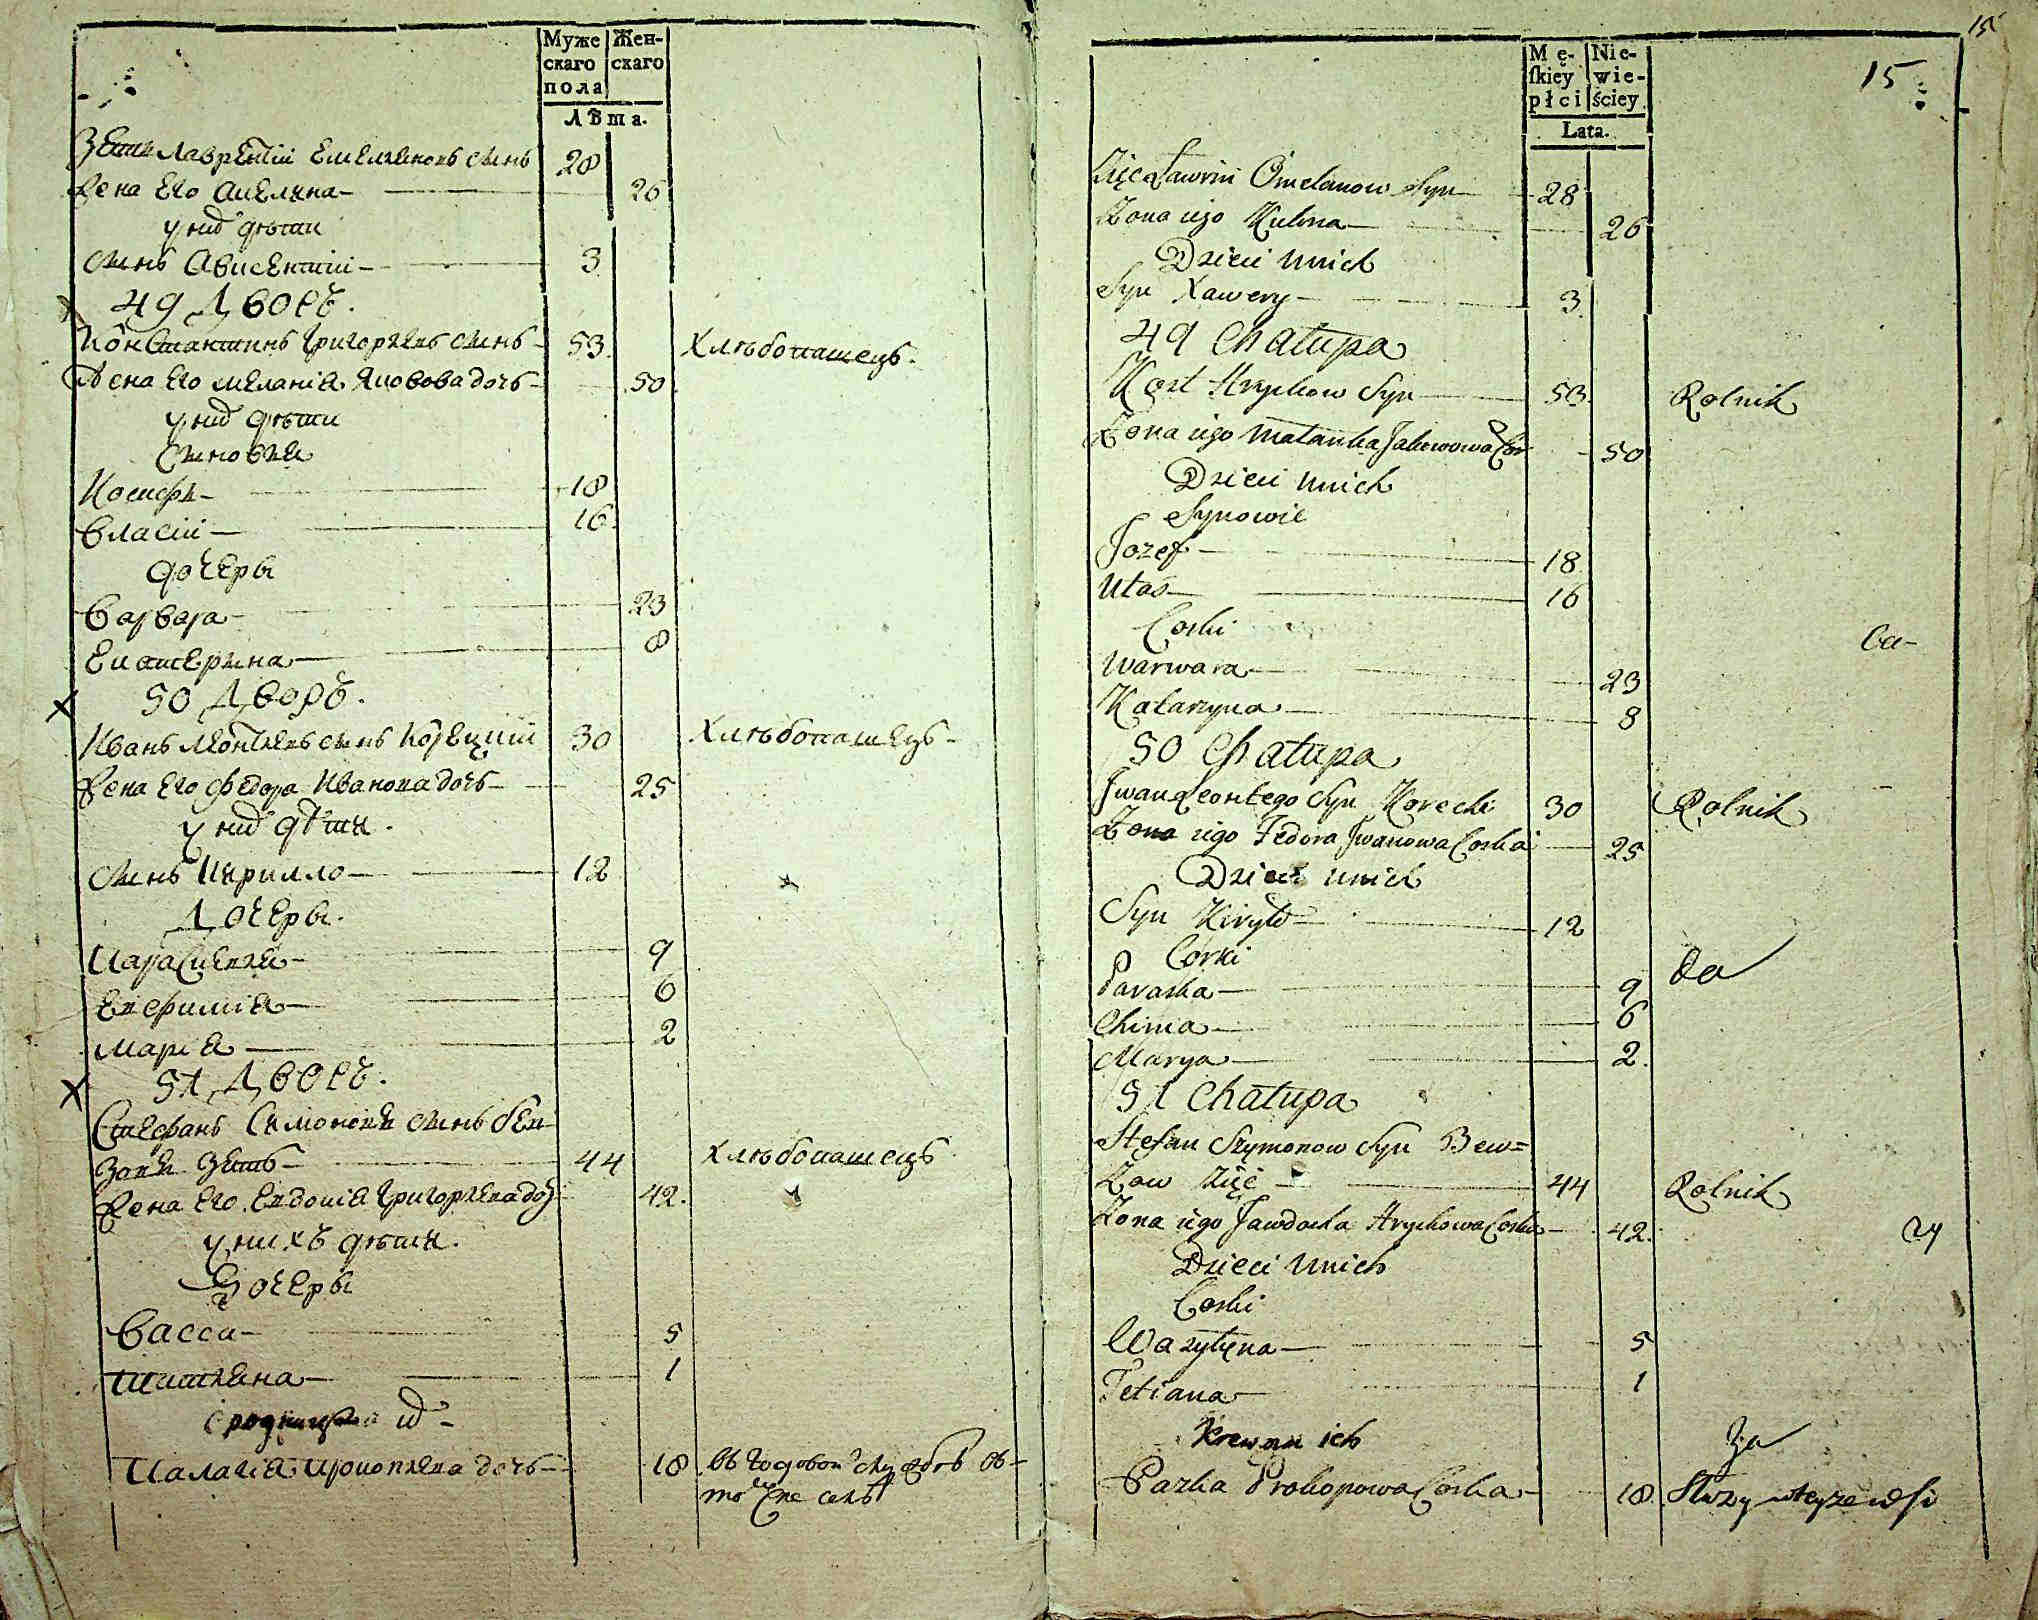 Муже
скаго
пола
Жен-
скаго
Лѣта.
Зять Лаврентій Емельяновъ сынъ 28
Жена Его Акелина 26
у них дѣти
сынъ Авксентій 3
49 Дворъ.
Константинъ Григорьевъ сынъ 53. Хлѣбопашецъ.
Жена Его Меланія Яковова дочь 50
у них дѣти
Сыновья
Иосифъ 18
Власій 16.
дочеры
Варвара 23
Екатерина 8
50 Дворъ.
Иванъ Леонтьевъ сынъ Корецкій 30 Хлѣбопашецъ
Жена Его Федора Иванова дочь 25
у них дѣти.
сынъ Кирилло 12
Дочеры.
Парасковья 9
Евфимія 6
Марія 2
51 Дворъ.
Стефанъ Симоновъ сынъ Бев-
зовъ Зять 44 Хлѣбопашецъ
Жена Его Евдокія Григорьева доч 42.
у нихъ дѣти.
Дочеры
Васса 5
Татіяна 1
сродница их
Палагія Прокопьева дочь 18 въ годовой службѣ въ
то же селѣ
15
Mę-
ſkiey
płci
Nie-
wie-
ściey
Lata.
15
Zięć Ławrin Omelanow Syn 28
Żona iego Kulina 26
Dzieci unich
Syn Xawery 3
49 Chałupa
Kost Hryckow Syn 53. Rolnik
Żona iego Małanka Jakowowa Cor 50
Dzieci unich
Synowie
Jozef 18
Ułas 16
Corki
Warwara 23
Katarzyna 8
50 Chałupa
Jwan Leontego Syn Korecki 30 Rolnik
Żona iego Fedora Jwanowa Corka 25
Dzieci unich
Syn Kiryło 12
Corki
Paraska 9
Chima 6
Marya 2.
51 Chałupa
Stefan Szymonow Syn Bew=
Zow zięć 44 Rolnik
Żona iego Jawdocha Hryckowa Corka 42.
Dzieci unich
Corki
Wasylyna 5
Tetiana 1
Krewna ich
Pazka Prokopowa Corka 18. Służy wteyże wsi